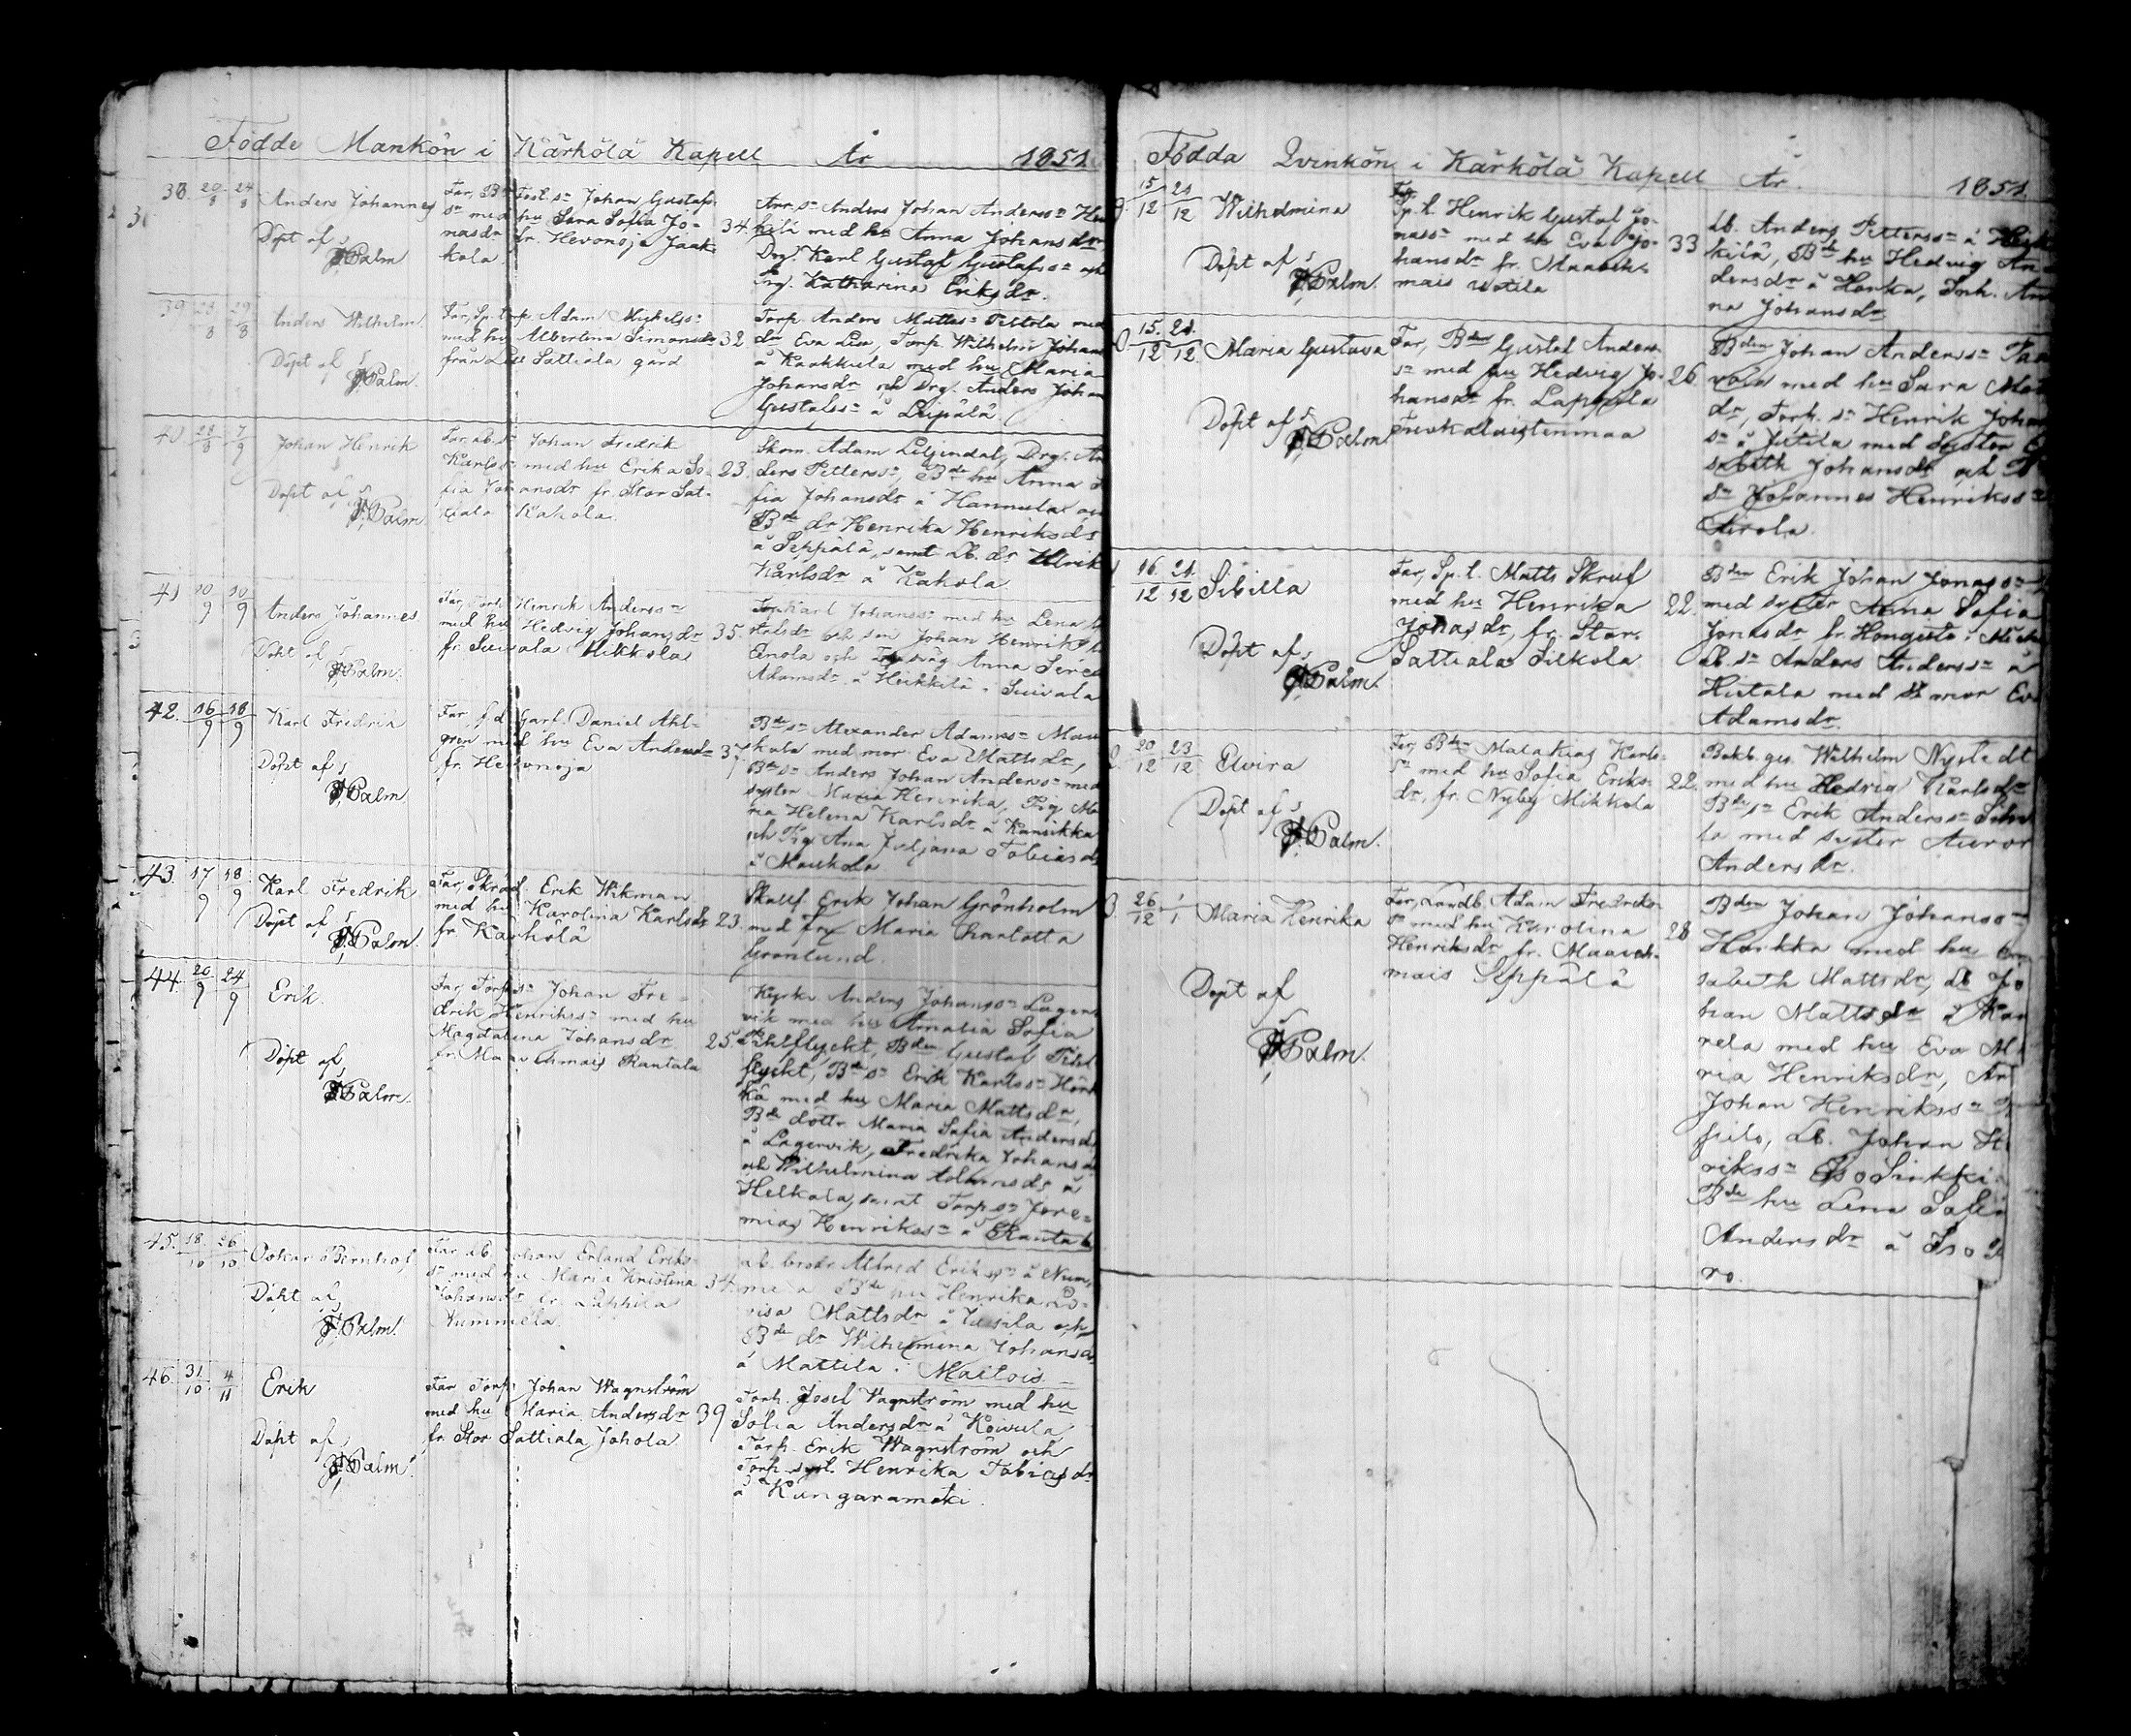 Födde Mankön i Kärkölä Kapell År 1851.
38. 20/8 24/8 Anders Johannes
Döpt af
Palm
Far, Bde Fost. sn Johan Gustafs-
sn med hu Sara Sofia Jo-
nasdr fr. Hevonoja Jaak-
kola
34.
Anders Johan Anderssn
med hu Anna Johansdr
Drg. Karl Gustaf Gustafssn och
Pig. Katharina Eriksdr.
39 29/8 Anders Wilhelm
Döpt af
Palm.
Far, Sp. torp. Adam Michelss-
med hu Albertina Simonsdr
från Lill Sattiala gård
32
Torp. Anders Mattss- med
dr Eva Lisa, Torp. Wilhelm Johans
å Kaakkula med hu Maria
Johansdr och Drg. Anders Johan
Gustafssn å Leipälä
40 28/8 7/9 Johan Henrik
Döpt af
Palm
Far, ab. sn Johan Fredrik
Karlssn med hu Erika So-
fia Johansdr fr. Stor Sat-
tiala Kakola
23.
Skom. Adam Liljendal, Drg. An
ders Petterss-, Bde hu Anna
fia Johansdr å Hannula
Bde dr Henrika Henriksdr
å Seppälä, samt Lb. dr Ulrik
Karlsdr å Kakola
41 10/9 10/9 Anders Johannes
Döpt af
Palm.
Far, Torp. Henrik Anderss-
med hu Hedvig Johansdr
fr. Suivala Mikkola
35.
Torp Karl Johanss- med hu Lena
och son Johan Henrik
Einola och Anna
Adamsdr å Heikkilä i Suivala
42. 16/9 18/9 Karl Fredrik
Döpt af
Palm
Far f.d. Garf. Daniel Ahl-
gren med hu Eva Andersdr
fr. Hevonoja
37
Bde sn Alexander Adamss-
kola med mor Eva Mattsdr,
Bde sn Anders Johan Anderss- med
syster Maria Henrika, Pig Ma
ria Helena Karlsdr å Kansikka
och Pig Ana Juljana Tobiasdr
å Maukola
43. 17/9 18/9 Karl Fredrik
Döpt af
Palm.
Far, Skräd. Erik Wikman
med hu Karolina Karlsdr
fr Kärkölä
23.
Skallf. Erik Johan Grönholm
med Fru Maria Charlotta
Grönlund.
44. 20/9 24/9 Erik.
Döpt af
Palm.
Far, Torp sn Johan Fre-
drik Henrikss- med hu
Magdalena Johansdr
fr. Maavehmais Rantala
25.
Kyrkv. Anders Johanssn Lager
vik med hu Amalia Sofia
Pihlflyckt, Bden Gustaf Pihl
flyckt, Bde sn Erik Karlss- Hör
kä med hu Maria Mattsdr,
Bde dottr. Maria Sofia Andersdr
å Lagervik, Fredrika Johansdr
och Wilhelmina Adamsdr å
Heikola, samt Torp sn Jere-
mias Henrikssn å Ranta
45. 18/10 26/10 Oskar Bernhof
Döpt af
Palm
Far ab. Johan Erland Eriks-
sn med hu Maria Kristina
Johansdr fr. Lappila
Nummela
34.
ab. brodr Alfred Erikssn å Num,
mela Bde hu Henrika Lo-
visa Mattsdr å Uusila och
Bde dr Wilhelmina Johansdr,
å Mattila i Maitois
46. 31/10 4/11 Erik
Döpt af
Palm
Far Torp. Johan Wagnström
med hu Maria Andersdr
fr Stor Sattiala Johola
39
Torp. Josef Wagnström med hu
Sofia Andersdr å Koivula
Torp. Erik Wagnström och
Torp. syst. Henrika Tobiasdr
å Kungaramäki.
Födda Qvinkön i Kärkölä Kapell År. 1851.
15/12 21/12 Wilhelmina
Döpt af
Palm.
Far,
Sp. t. Henrik Gustaf Jo-
nassn med hu Eva Jo-
hansdr fr. Maaveh-
mais Uotila
33
Lb. Anders Petterssn å Heik
kilä, Bde hu Hedvig An
dersdr å Honka, Inh. An
na Johansdr
15/12 21/12 Maria Gustava
Döpt af
Palm
Far, Bden Gustaf Anders-
sn med hu Hedvig Jo-
hansdr fr. Lappila
26.
Bden Johan Anderssn Paa
vola med hu Sara Mat
dr, Torp. sn Henrik Johan
sn å Jutila med syster
sabeth Johansdr och
sn Johannes Henrikss-
Airola.
16/12 21/12 Sibilla
Döpt af
Palm.
Far, Sp. t. Matts Skruf
med hu Henrika
Jonasdr, fr. Stor
Sattiala Silkola
22.
Bden Erik Johan Jonassn
med syster Anna Sofia
Jonasdr fr. Hongisto i
Lb. sn Anders Anderssn å
Hietala med mor Eva
Adamsdr
20/12 23/12 Elvira
Döpt af
Palm.
Far, Bden Malakias Karls-
sn med hu Sofia Eriks-
dr, fr. Nyby Mikkola
22.
Bokb. ges. Wilhelm Nystedt
med hu Hedvig Karlsdr
Bde sn Erik Anderssn
la med syster Auror
Andersdr.
26/12 1/1 Maria Henrika
Döpt af
Palm.
Far, Landb. Adam Fredriks-
sn med hu Karolina
Henriksdr fr. Maaveh-
mais Seppälä
28
Bden Johan Johanss-
Harkka med hu
sabeth Mattsdr, Lb Jo
han Mattss- å Kar
rela med hu Eva Ma
ria Henriksdr,
Johan Henrikssn
pilo, Lb. Johan
rikssn Iso Sinkki
Bde hu Lena Sofi
Andersdr å Iso
ro.